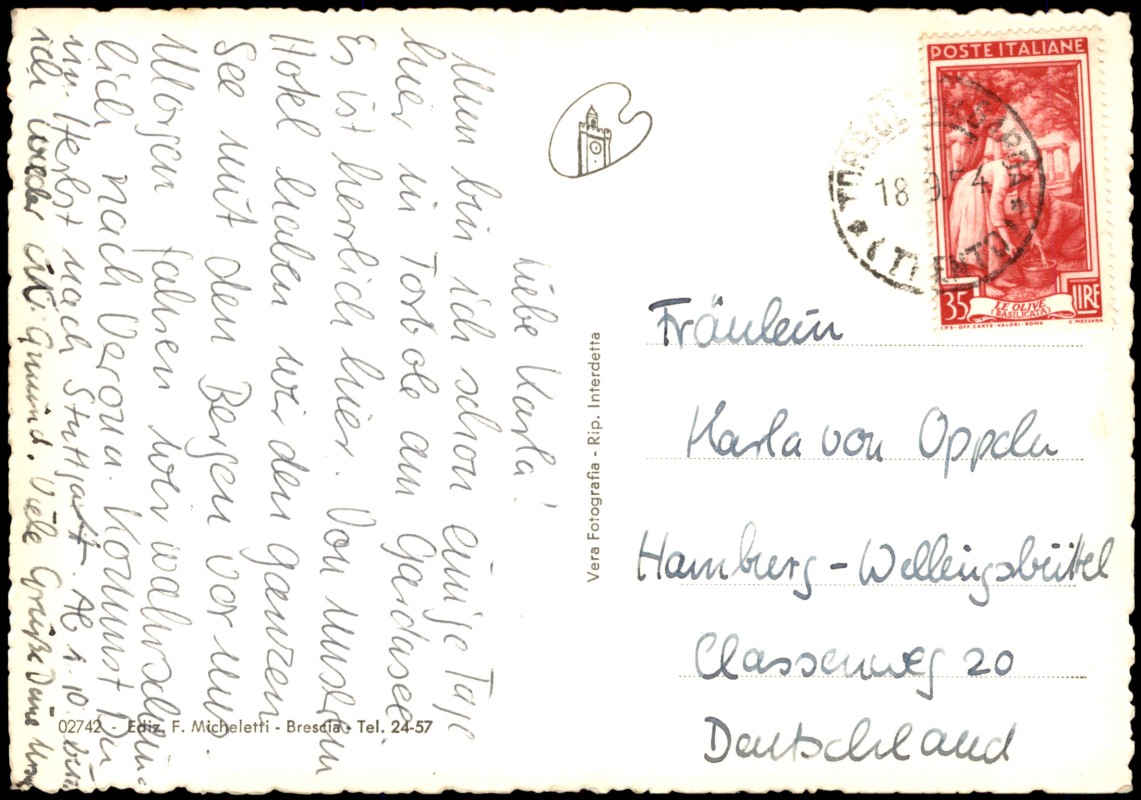 Liebe Karla!
Nun bin ich schon einige Tage
hier in Torbole am Gardasee.
Es ist herrlich hier. Von unserem
Hotel haben wir den ganzen
See mit den Bergen vor uns.
Morgen fahren wir wahrschein
lich nach Verona. Kommst Du
im Herbst nach Stuttgart. Ab 1.10. bin
ich wieder in Gmünd. Viele Grüße Deine
Vera Fotografia - Rip. Interdetta
02742 - Ediz. F. Micheletti - Brescia - Tel. 24-57
POSTE ITALIANE
35 LIRE
LE OLIVE
(BASILICATA)
I.P.S.-OFF. CARTE-VALORI-ROMA C. MEZZANA
18 9 54
(TRENTO)
Fräulein
Karla von Oppeln
Hamburg-Wellingsbüttel
Classenweg 20
Deutschland